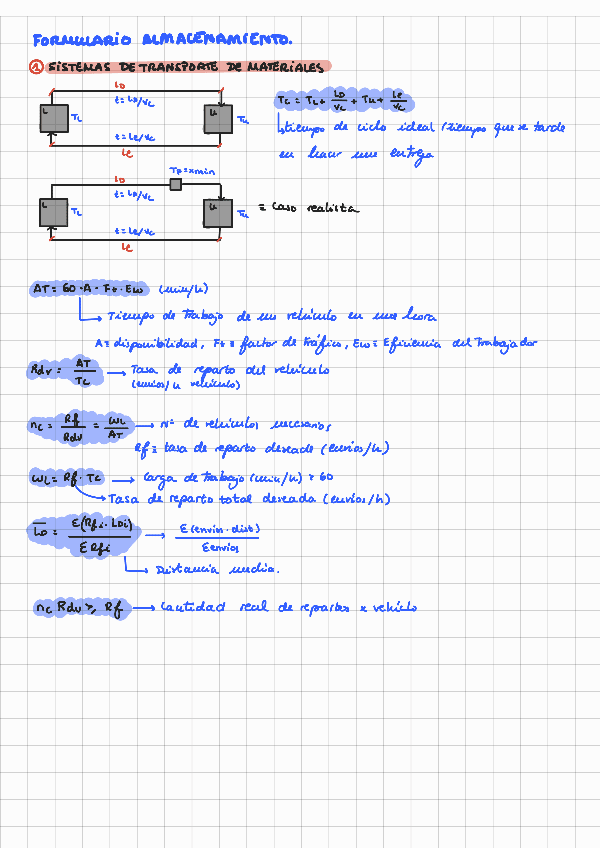 FORMULARIO ALMACENAMIENTO.
① SISTEMAS DE TRANSPORTE DE MATERIALES
LD
t = LD/Vc
L
TL
U
Tu
t = Le/Vc
Le
Tc = TL + LD/Vc + Tu + Le/Vc
↳ tiempo de ciclo ideal (tiempo que se tarda
en hacer una entrega
LD
TP = x min
t = LD/Vc
L
TL
U
Tu
t = Le/Vc
Le
= caso realista
AT = 60 · A · Ft · Ew (min/h)
→ Tiempo de trabajo de un vehículo en una hora
A = disponibilidad, Ft = factor de tráfico, Ew = Eficiencia del trabajador
Rdv = AT/Tc → Tasa de reparto del vehículo
(envíos/h vehículo)
nc = Rf/Rdv = WL/AT → nº de vehículos necesarios
Rf = tasa de reparto deseada (envíos/h)
WL = Rf · Tc → Carga de trabajo (min/h) > 60
→ Tasa de reparto total deseada (envíos/h)
L̅D̅ = Σ(Rfi · LDi)/ΣRfi → Σ(envío · dist)/Σenvíos
→ Distancia media.
nc Rdv ≥ Rf → Cantidad real de repartos x vehículo